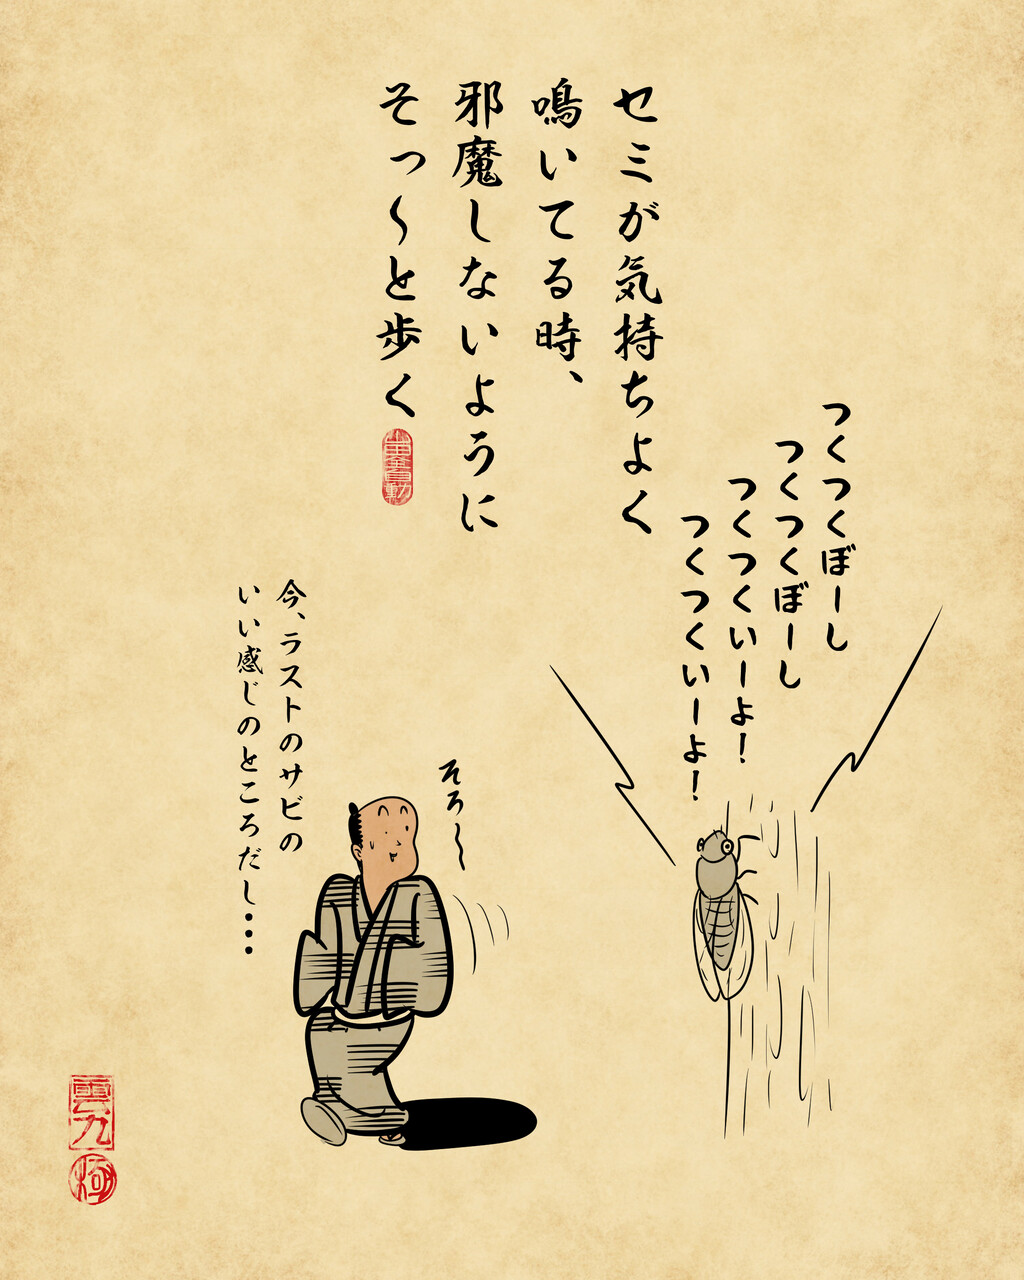 セミが気持ちよく
鳴いてる時、
邪魔しないように
そっ〜と歩く
つくつくぼーし
つくつくぼーし
つくつくいーよ！
つくつくいーよ！
そろ〜
今、ラストのサビの
いい感じのところだし・・・